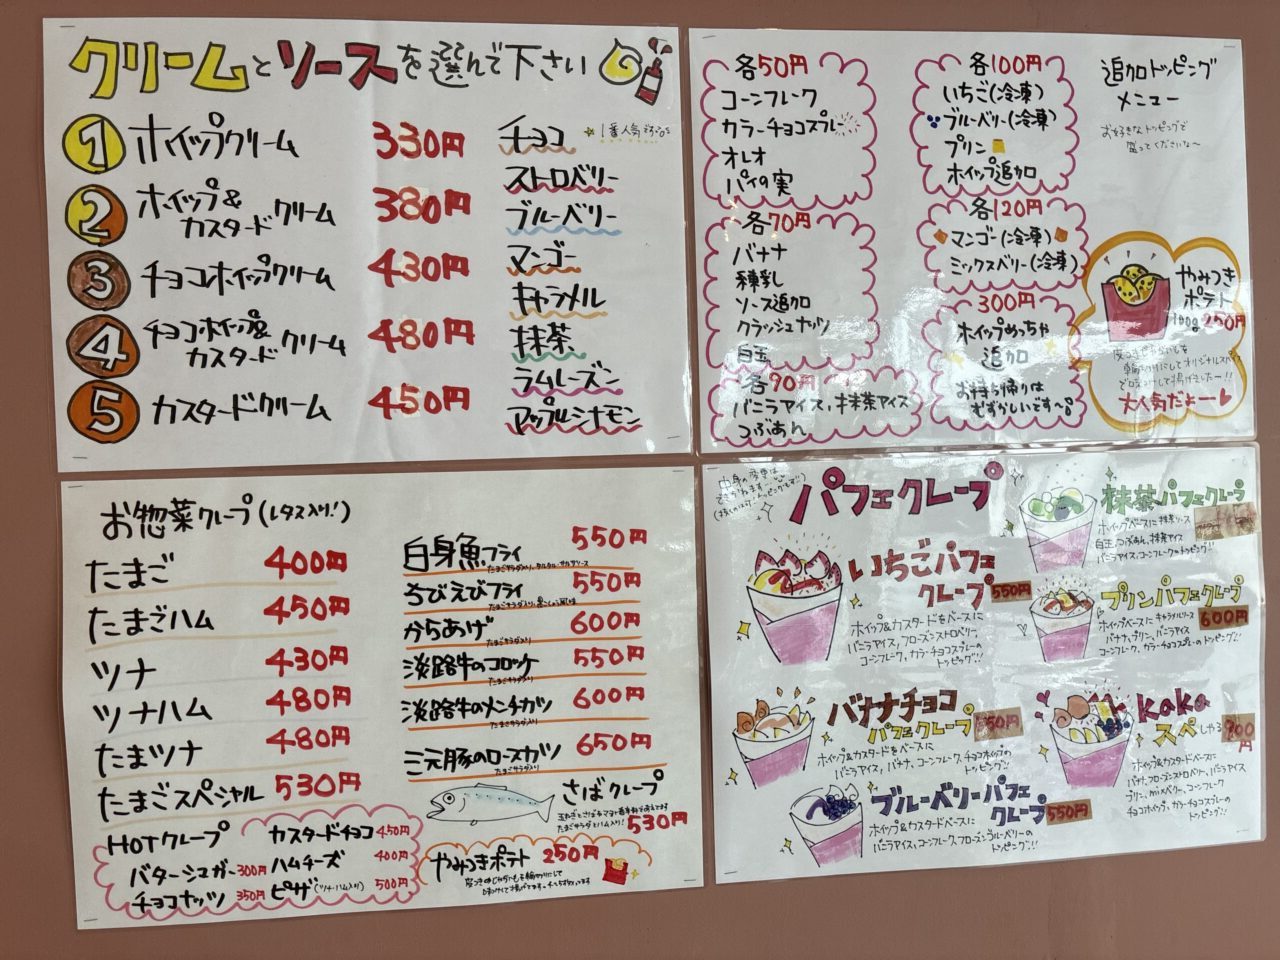 クリームとソースを選んで下さい
1 ホイップクリーム 330円
2 ホイップ&カスタードクリーム 380円
3 チョコホイップクリーム 430円
4 チョコホイップ&カスタードクリーム 480円
5 カスタードクリーム 450円
チョコ
ストロベリー
ブルーベリー
マンゴー
キャラメル
抹茶
ラムレーズン
アップルシナモン
追加トッピング
メニュー
お好きなトッピングで
盛ってくださいな〜
各50円
コーンフレーク
カラーチョコスプレー
オレオ
パイの実
各70円
バナナ
練乳
ソース追加
クラッシュナッツ
白玉
各90円
バニラアイス,抹茶アイス
つぶあん
各100円
いちご(冷凍)
ブルーベリー(冷凍)
プリン
ホイップ追加
各120円
マンゴー(冷凍)
ミックスベリー(冷凍)
300円
ホイップめっちゃ
追加
お持ち帰りは
むずかしいです〜
やみつき
ポテト
100g 250円
大人気だよー
お惣菜クレープ(レタス入り!)
たまご 400円
たまごハム 450円
ツナ 430円
ツナハム 480円
たまツナ 480円
たまごスペシャル 530円
白身魚フライ 550円
ちびえびフライ 550円
からあげ 600円
たまごサラダ入り
淡路牛のコロッケ 550円
たまごサラダ入り
淡路牛のメンチカツ 600円
たまごサラダ入り
三元豚のロースカツ 650円
たまごサラダ入り
さばクレープ
530円
HOTクレープ
カスタードチョコ 450円
バターシュガー 300円
ハムチーズ 400円
チョコナッツ 350円
ピザ(ツナ・ハム入り) 500円
やみつきポテト 250円
パフェクレープ
いちごパフェ
クレープ 550円
ホイップ&カスタードをベースに
バニラアイス,フローズンストロベリー,
コーンフレーク,カラーチョコスプレーの
トッピング!!
抹茶パフェクレープ
ホイップベースに抹茶ソース
白玉,つぶあん,抹茶アイス
バニラアイス,コーンフレークのトッピング!!
プリンパフェクレープ
600円
ホイップベースにキャラメルソース
バナナ,プリン,バニラアイス
コーンフレーク,カラーチョコスプレーのトッピング!!
バナナチョコ
パフェクレープ
ホイップ&カスタードをベースに
バニラアイス,バナナ,コーンフレーク チョコホイップの
トッピング!!
kaka
スペしゃる 700円
ホイップ&カスタードベースに
バナナ,フローズンストロベリー,バニラアイス
プリン,mixベリー,コーンフレーク
チョコホイップ,カラーチョコスプレーの
トッピング!!
ブルーベリーパフェ
クレープ 550円
ホイップ&カスタードベースに
バニラアイス,コーンフレーク,フローズンブルーベリーの
トッピング!!